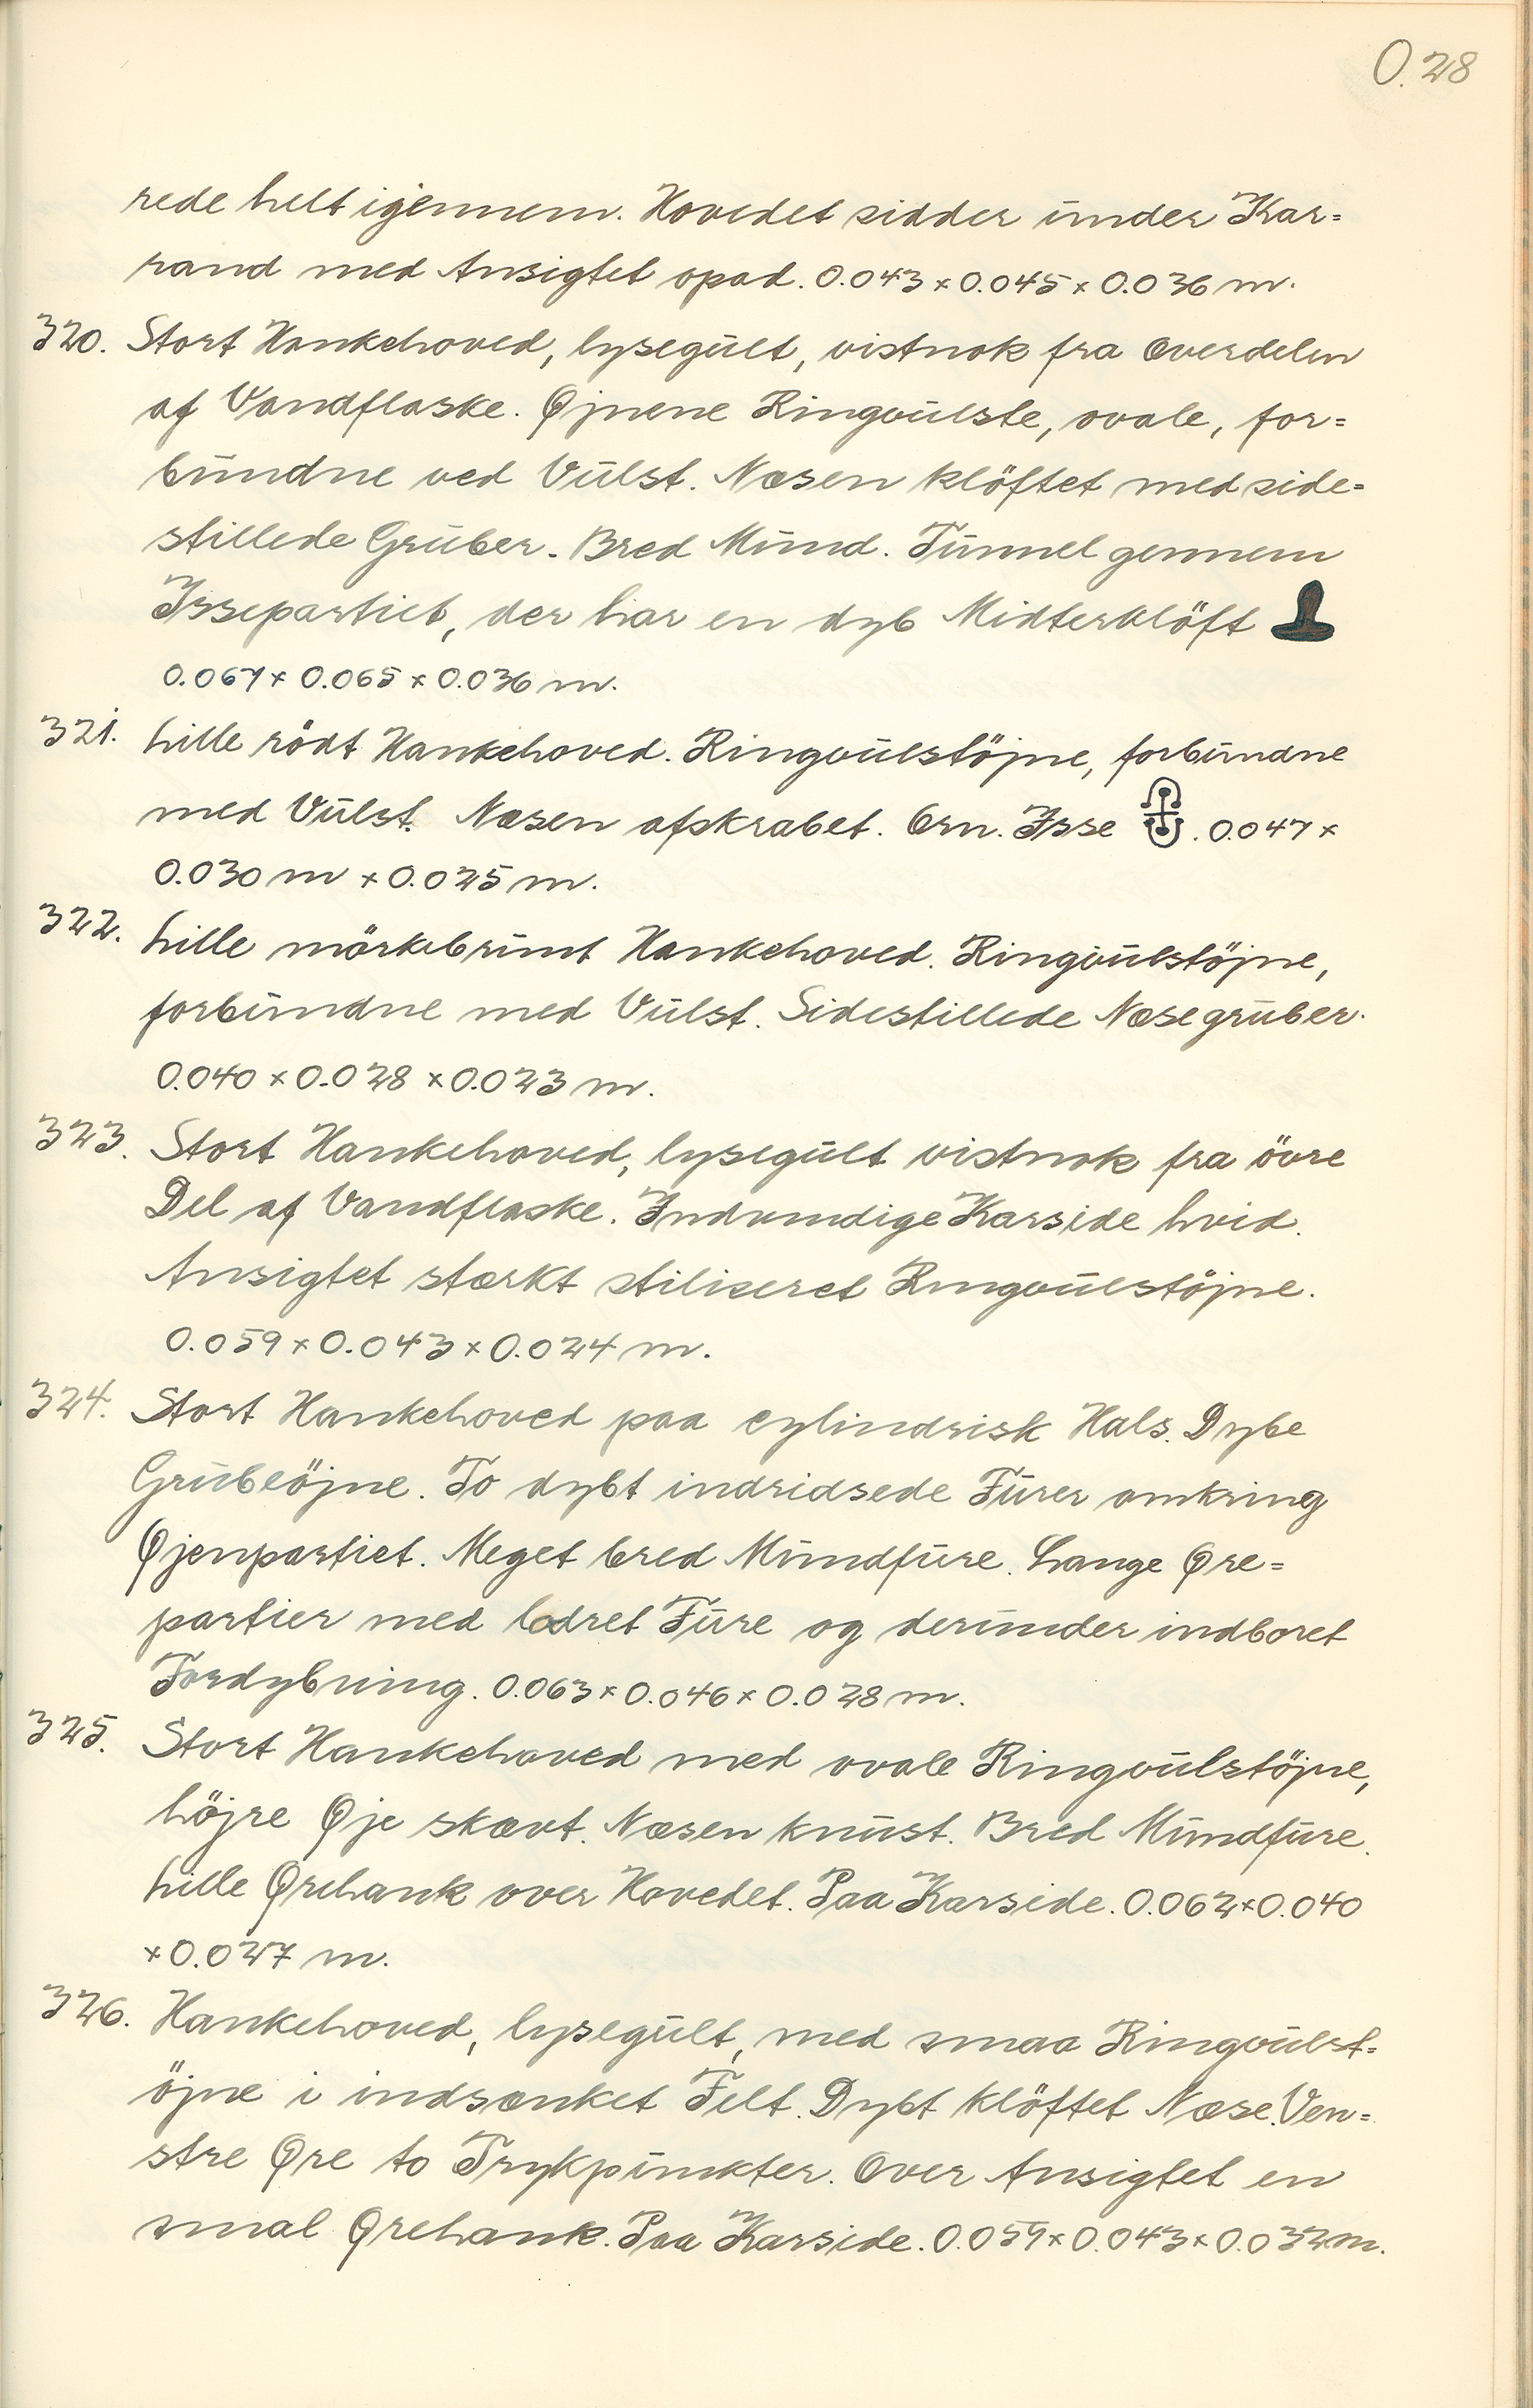 O.28
rede helt igennem. Hovedet sidder under Kar=
rand med Ansigtet opad. 0.043 x 0.045 x 0.036 m.
320. Stort Hankehoved, lysegult, vistnok fra Overdelen
af Vandflaske. Øjnene Ringvulste, ovale, for=
bundne ved Vulst. Næsen klöftet med side=
stillede Gruber. Bred Mund. Tunnel gennem
Issepartiet, der har en dyb Midterklöft
0.067 x 0.065 x 0.036 m.
321. Lille rödt Hankehoved. Ringvulstöjne, forbundne
med Vulst. Næsen afskrabet. Orn. Isse . 0.047 x
0.030 m x 0.025 m.
322. Lille mörkebrunt Hankehoved. Ringvulstöjne,
forbundne med Vulst. Sidestillede Næsegruber.
0.040 x 0.028 x 0.023 m.
323. Stort Hankehoved, lysegult vistnok fra övre
Del af Vandflaske. Indvendige Karside hvid.
Ansigtet stærkt stiliseret Ringvulstöjne.
0.059 x 0.043 x 0.024 m.
324. Stort Hankehoved paa cylindrisk Hals. Dybe
Grubeöjne. To dybt indridsede Furer omkring
Øjenpartiet. Meget bred Mundfure. Lange Øre=
partier med lodret Fure og derunder indboret
Fordybning. 0.063 x 0.046 x 0.028 m.
325. Stort Hankehoved med ovale Ringvulstöjne,
höjre Øje skævt. Næsen knust. Bred Mundfure.
Lille Ørehank over Hovedet. Paa Karside. 0.062 x 0.040
x 0.027 m.
326. Hankehoved, lysegult, med smaa Ringvulst=
öjne i indsænket Felt. Dybt klöftet Næse. Ven=
stre Øre to Trykpunkter. Over Ansigtet en
smal Ørehank. Paa Karside. 0.059 x 0.043 x 0.032 m.